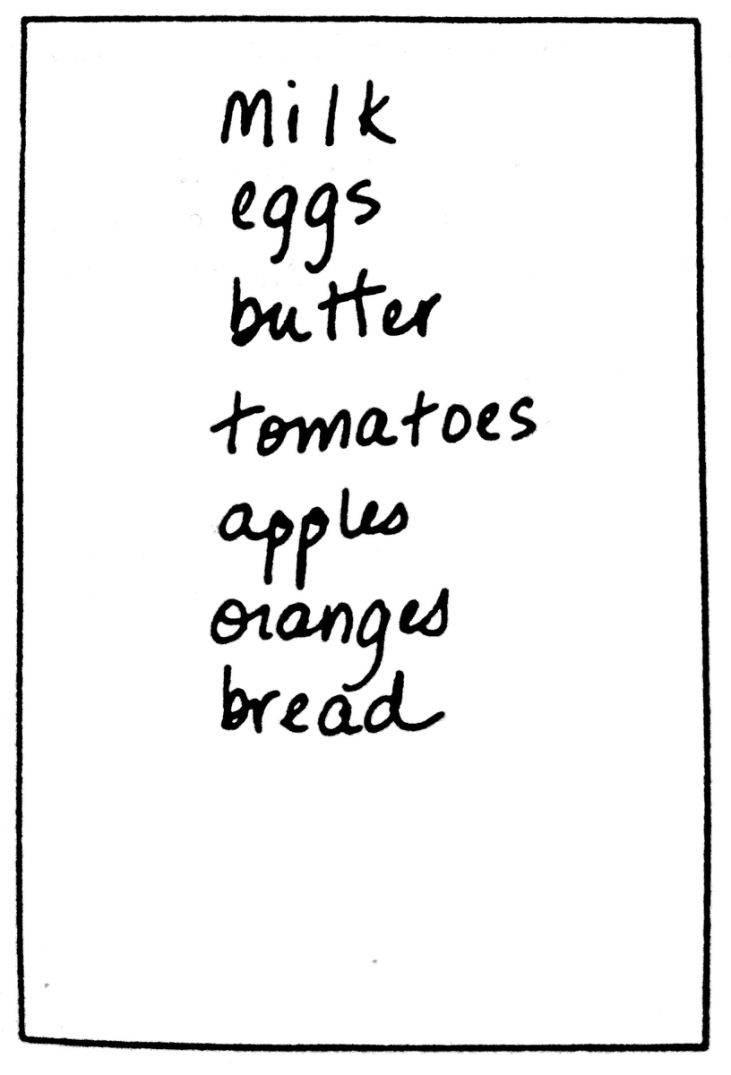 Milk
eggs
butter
tomatoes
apples
oranges
bread